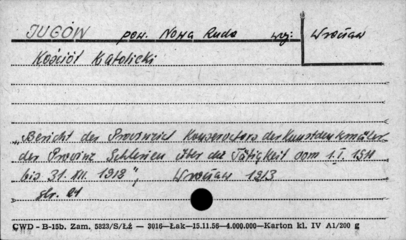 JUGÓW pow. Nowa Ruda woj: Wrocław
Kościół Katolicki
„Bericht des Provinzial Konservators der Kunstdenkmäler
der Provinz Schlesien über die Tätigkeit vom 1.I. 1911
bis 31.XII. 1913", Wrocław 1913
str. 21
CWD - B-15b. Zam. 5823/S/Łż — 3016—Łak—15.11.56—4.000.000—Karton kl. IV A1/200 g